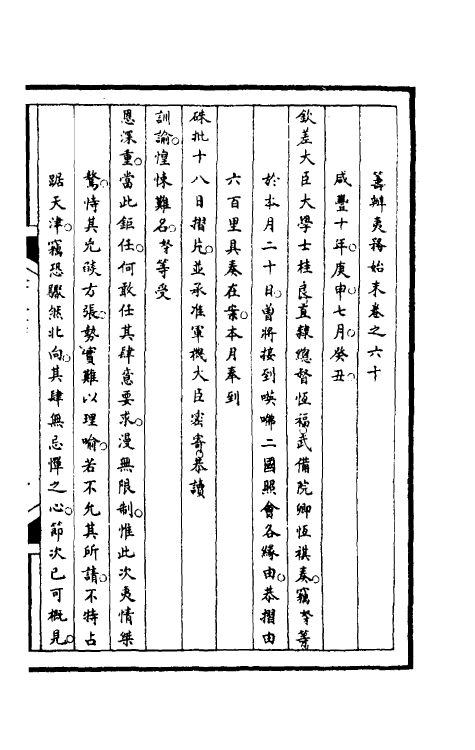 籌辦夷務始末卷之六十
咸豐十年庚申七月癸丑
欽差大臣大學士桂良直隸總督恆福武備院卿恆祺奏。竊奴才等
於本月二十日。曾將接到㗎咈二國照會各緣由。恭摺由
六百里具奏在案。本月奉到
硃批十八日摺片。並承准軍機大臣密寄。恭讀
訓諭。惶悚難名。奴才等受
恩深重。當此鉅任。何敢任其肆意要求。漫無限制。惟此次夷情桀
驁。恃其兇燄方張。勢實難以理喻。若不允其所請。不特占
踞天津。竊恐驟然北向。其肆無忌憚之心。節次已可概見。